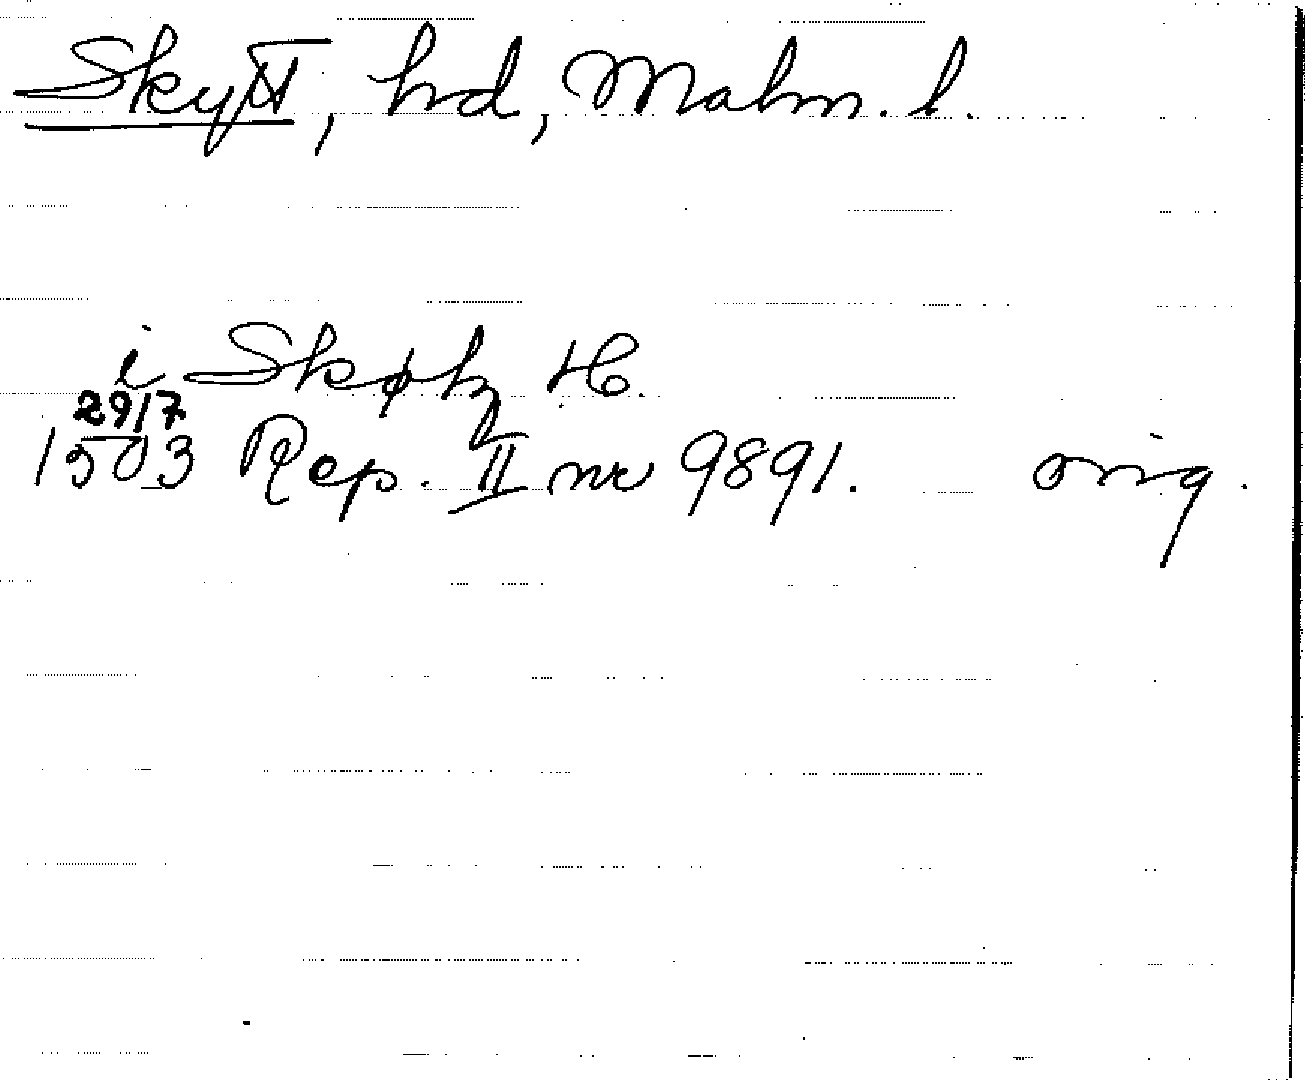 Skytt, hd, Malm. l.
i Skøtz H.
29/7
1503 Rep. II nr 9891. orig.